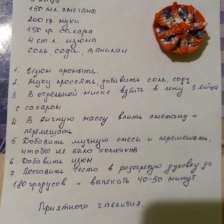 150 мл. сметаны
200 гр. муки
150 гр. сахара
4 ст. л. изюма
соль, сода, ванилин
1. Изюм промыть
2. Муку просеять, добавить соль, соду
3. В отдельной миске взбить в пену 3 яйца
с сахаром
4. В яичную массу влить сметану -
перемешать
5. Добавить мучную смесь и перемешать,
чтобы не было комочков
6. Добавить изюм
7. Поставить тесто в разогретую духовку до
180 градусов - выпекать 40-50 минут
Приятного аппетита.